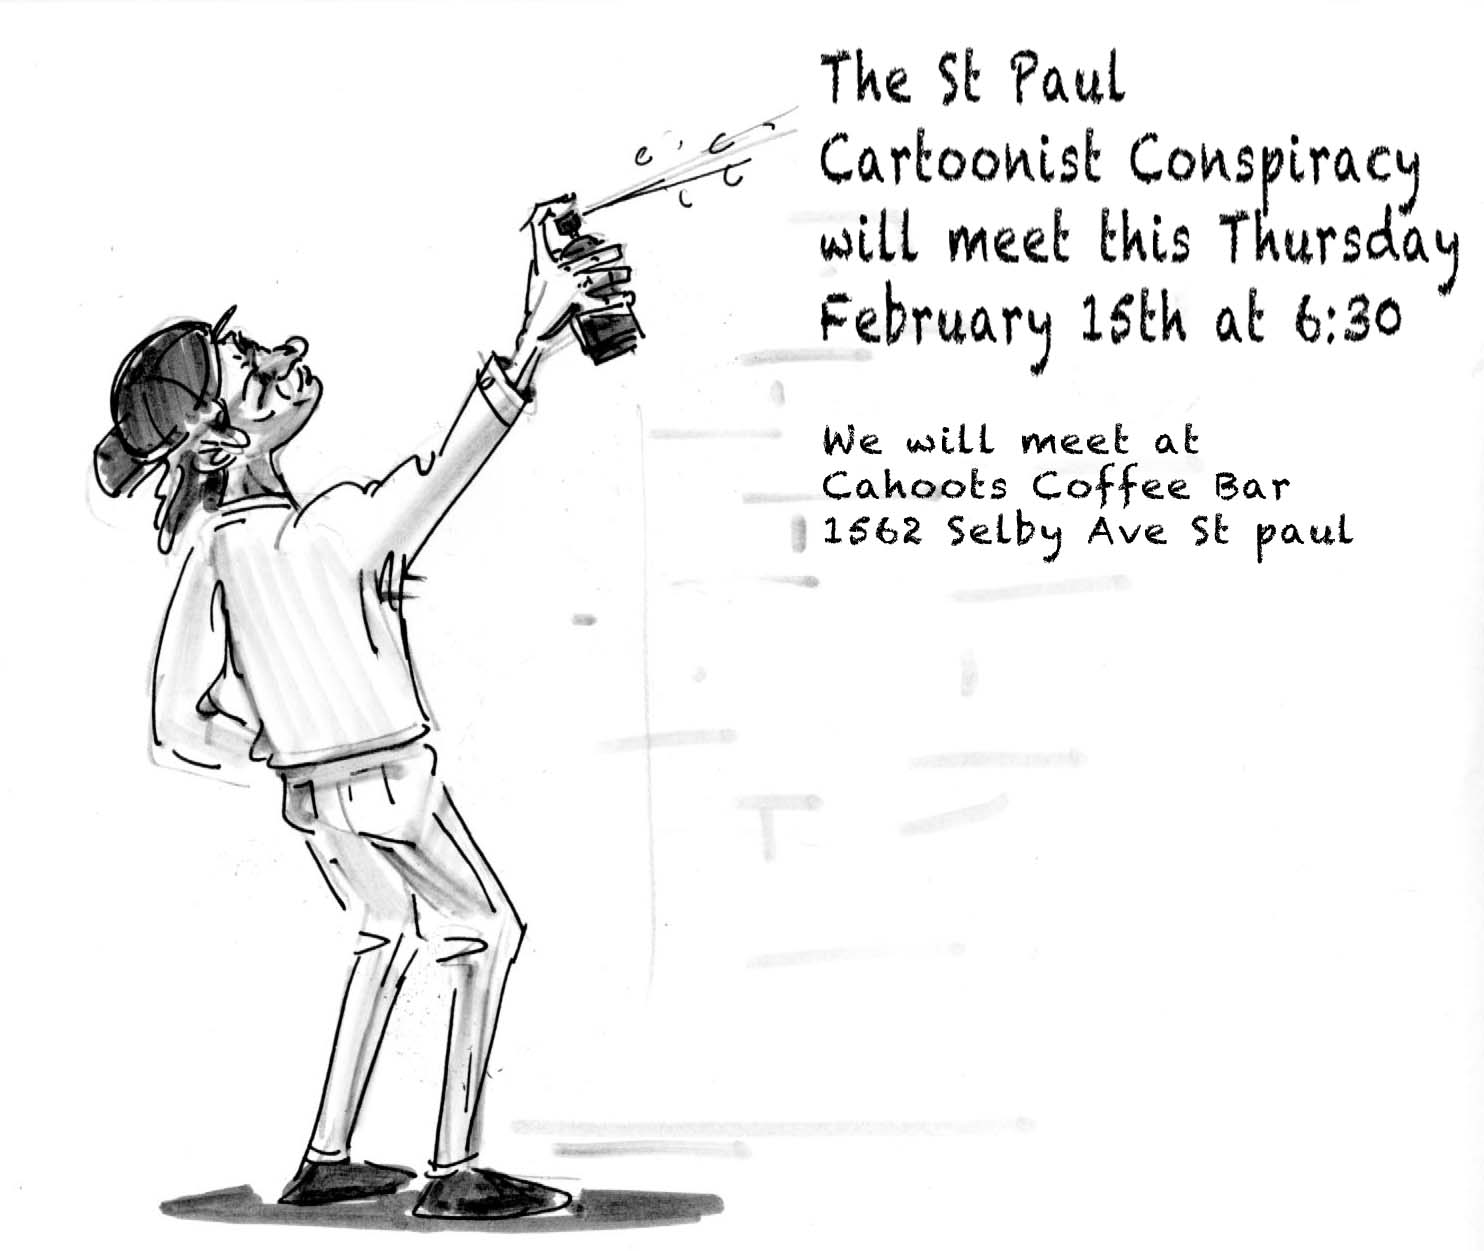 The St Paul
Cartoonist Conspiracy
will meet this Thursday
February 15th at 6:30
We will meet at
Cahoots Coffee Bar
1562 Selby Ave St paul